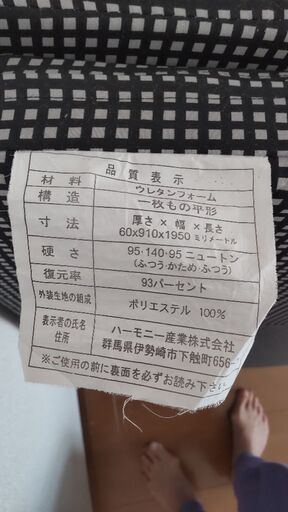 品質表示
材料 ウレタンフォーム
構造 一枚もの平形
寸法 厚さ×幅×長さ
60x910x1950ミリメートル
硬さ 95-140-95ニュートン
(ふつう・かため・ふつう)
復元率 93パーセント
外装生地の組成 ポリエステル 100%
表示者の氏名 ハーモニー産業株式会社
住所 群馬県伊勢崎市下触町656-
※ご使用の前に裏面を必ずお読み下さい